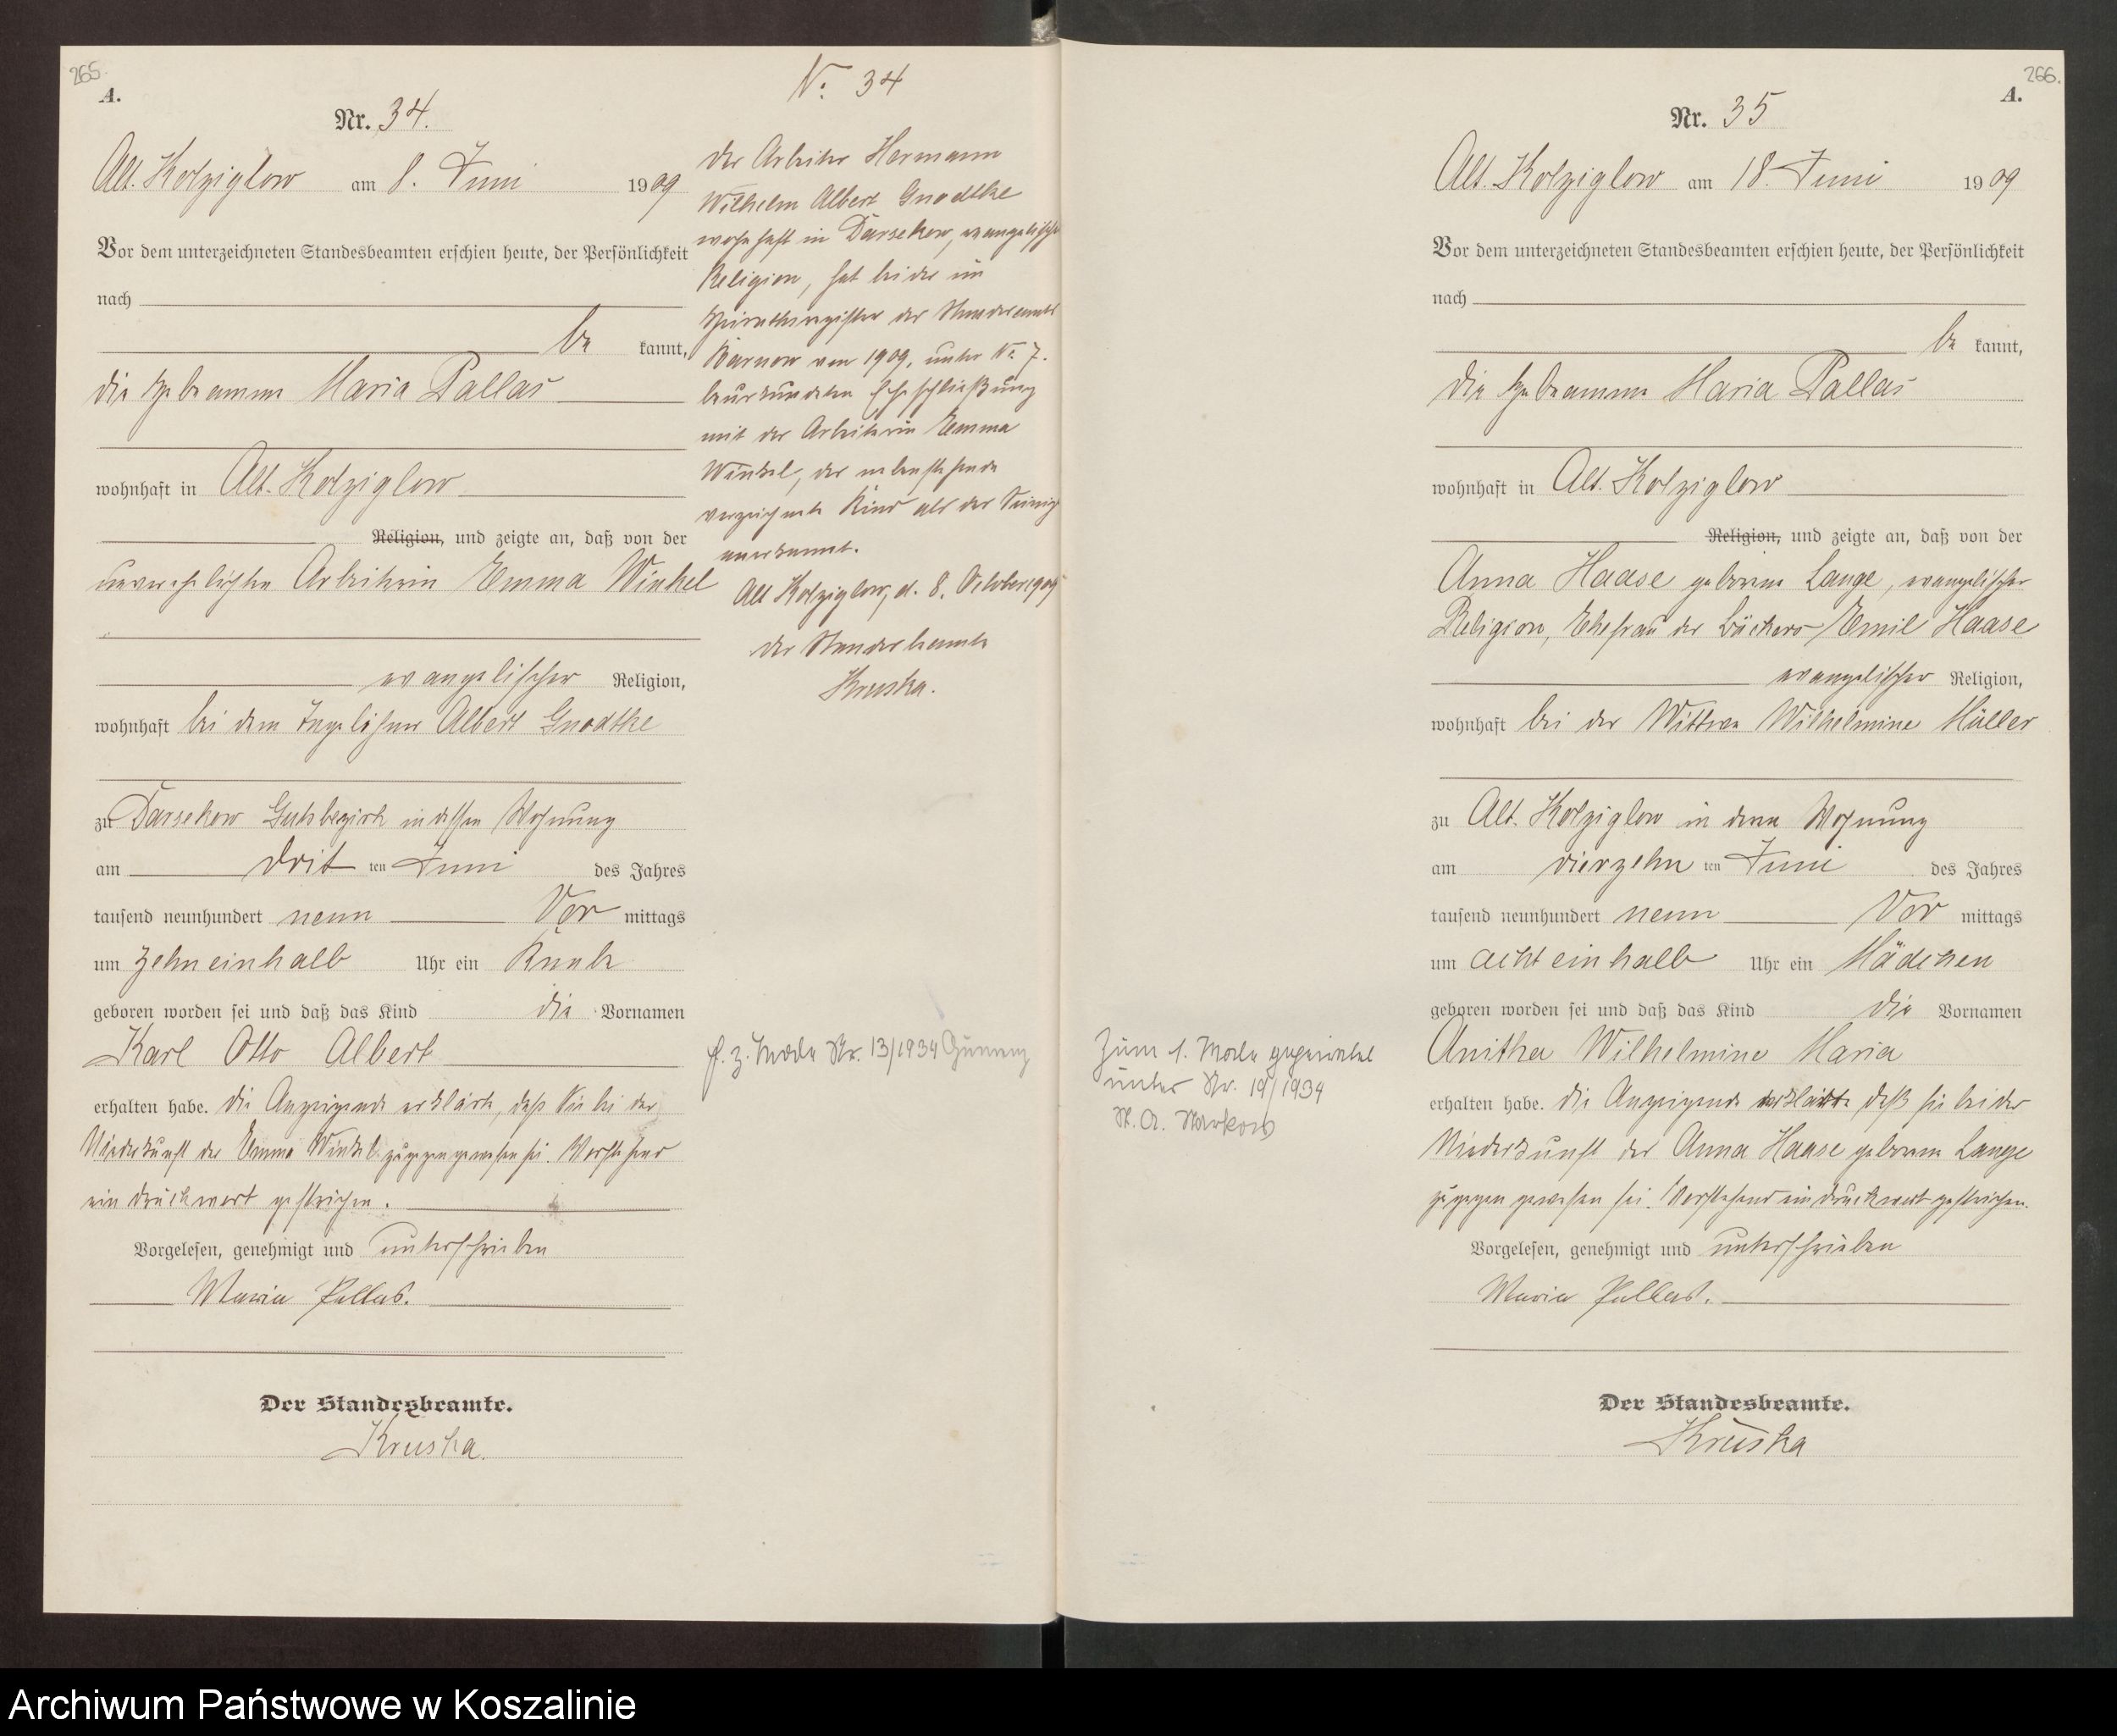 265.
A.
Nr. 34.
Alt. Kolziglow am 8. Juni 1909
Vor dem unterzeichneten Standesbeamten erschien heute, der Persönlichkeit
nach
be kannt,
die Hebeamme Maria Pallas
wohnhaft in Alt. Kolziglow
Religion, und zeigte an, daß von der
unverehelichten Arbeiterin Emma Winkel
evangelischer Religion,
wohnhaft bei dem Tagelöhner Albert Gnodtke
zu Darsekow Gutsbezirk in dessen Wohnung
am drit ten Juni des Jahres
tausend neunhundert neun Vor mittags
um zehneinhalb Uhr ein Knabe
geboren worden sei und daß das Kind die Vornamen
Karl Otto Albert
erhalten habe. Die Anzeigende erklärte, daß Sie bei der
Niederkunft der Emma Winkel zugegen gewesen sei. Vorstehend
ein Druckwort gestrichen.
Vorgelesen, genehmigt und unterschrieben
Maria Pallas.
Der Standesbeamte.
Kruska.
No. 34
Der Arbeiter Hermann
Wilhelm Albert Gnodtke
wohnhaft in Darsekow, evangelischer
Religion, hat bei der im
Heirathsregister des Standesamts
Barnow von 1909, unter No. 7.
beurkundeten Eheschließung
mit der Arbeiterin Emma
Winkel, das nebenstehende
verzeichnete Kind als das Seinige
anerkannt.
Alt Kolziglow, d. 8. October 1909
Der Standesbeamte
Kruska.
Nr. 13/1934
266.
A.
Nr. 35
Alt. Kolziglow am 18. Juni 1909
Vor dem unterzeichneten Standesbeamten erschien heute, der Persönlichkeit
nach
be kannt,
die Hebeamme Maria Pallas
wohnhaft in Alt. Kolziglow
Religion, und zeigte an, daß von der
Anna Haase geborene Lange, evangelischer
Religion, Ehefrau des Bäckers Emil Haase
evangelischer Religion,
wohnhaft bei der Wittwe Wilhelmine Müller
zu Alt. Kolziglow in deren Wohnung
am vierzehn ten Juni des Jahres
tausend neunhundert neun Vor mittags
um acht einhalb Uhr ein Mädchen
geboren worden sei und daß das Kind die Vornamen
Anitha Wilhelmine Maria
erhalten habe. Die Anzeigende erklärte daß sie bei der
Niederkunft der Anna Haase geborene Lange
zugegen gewesen sei. Vorstehend ein Druckwort gestrichen.
Vorgelesen, genehmigt und unterschrieben
Maria Pallas.
Der Standesbeamte.
Kruska
Zum 1. Male geheiratet
unter Nr. 19/1934
St. A.
Archiwum Państwowe w Koszalinie